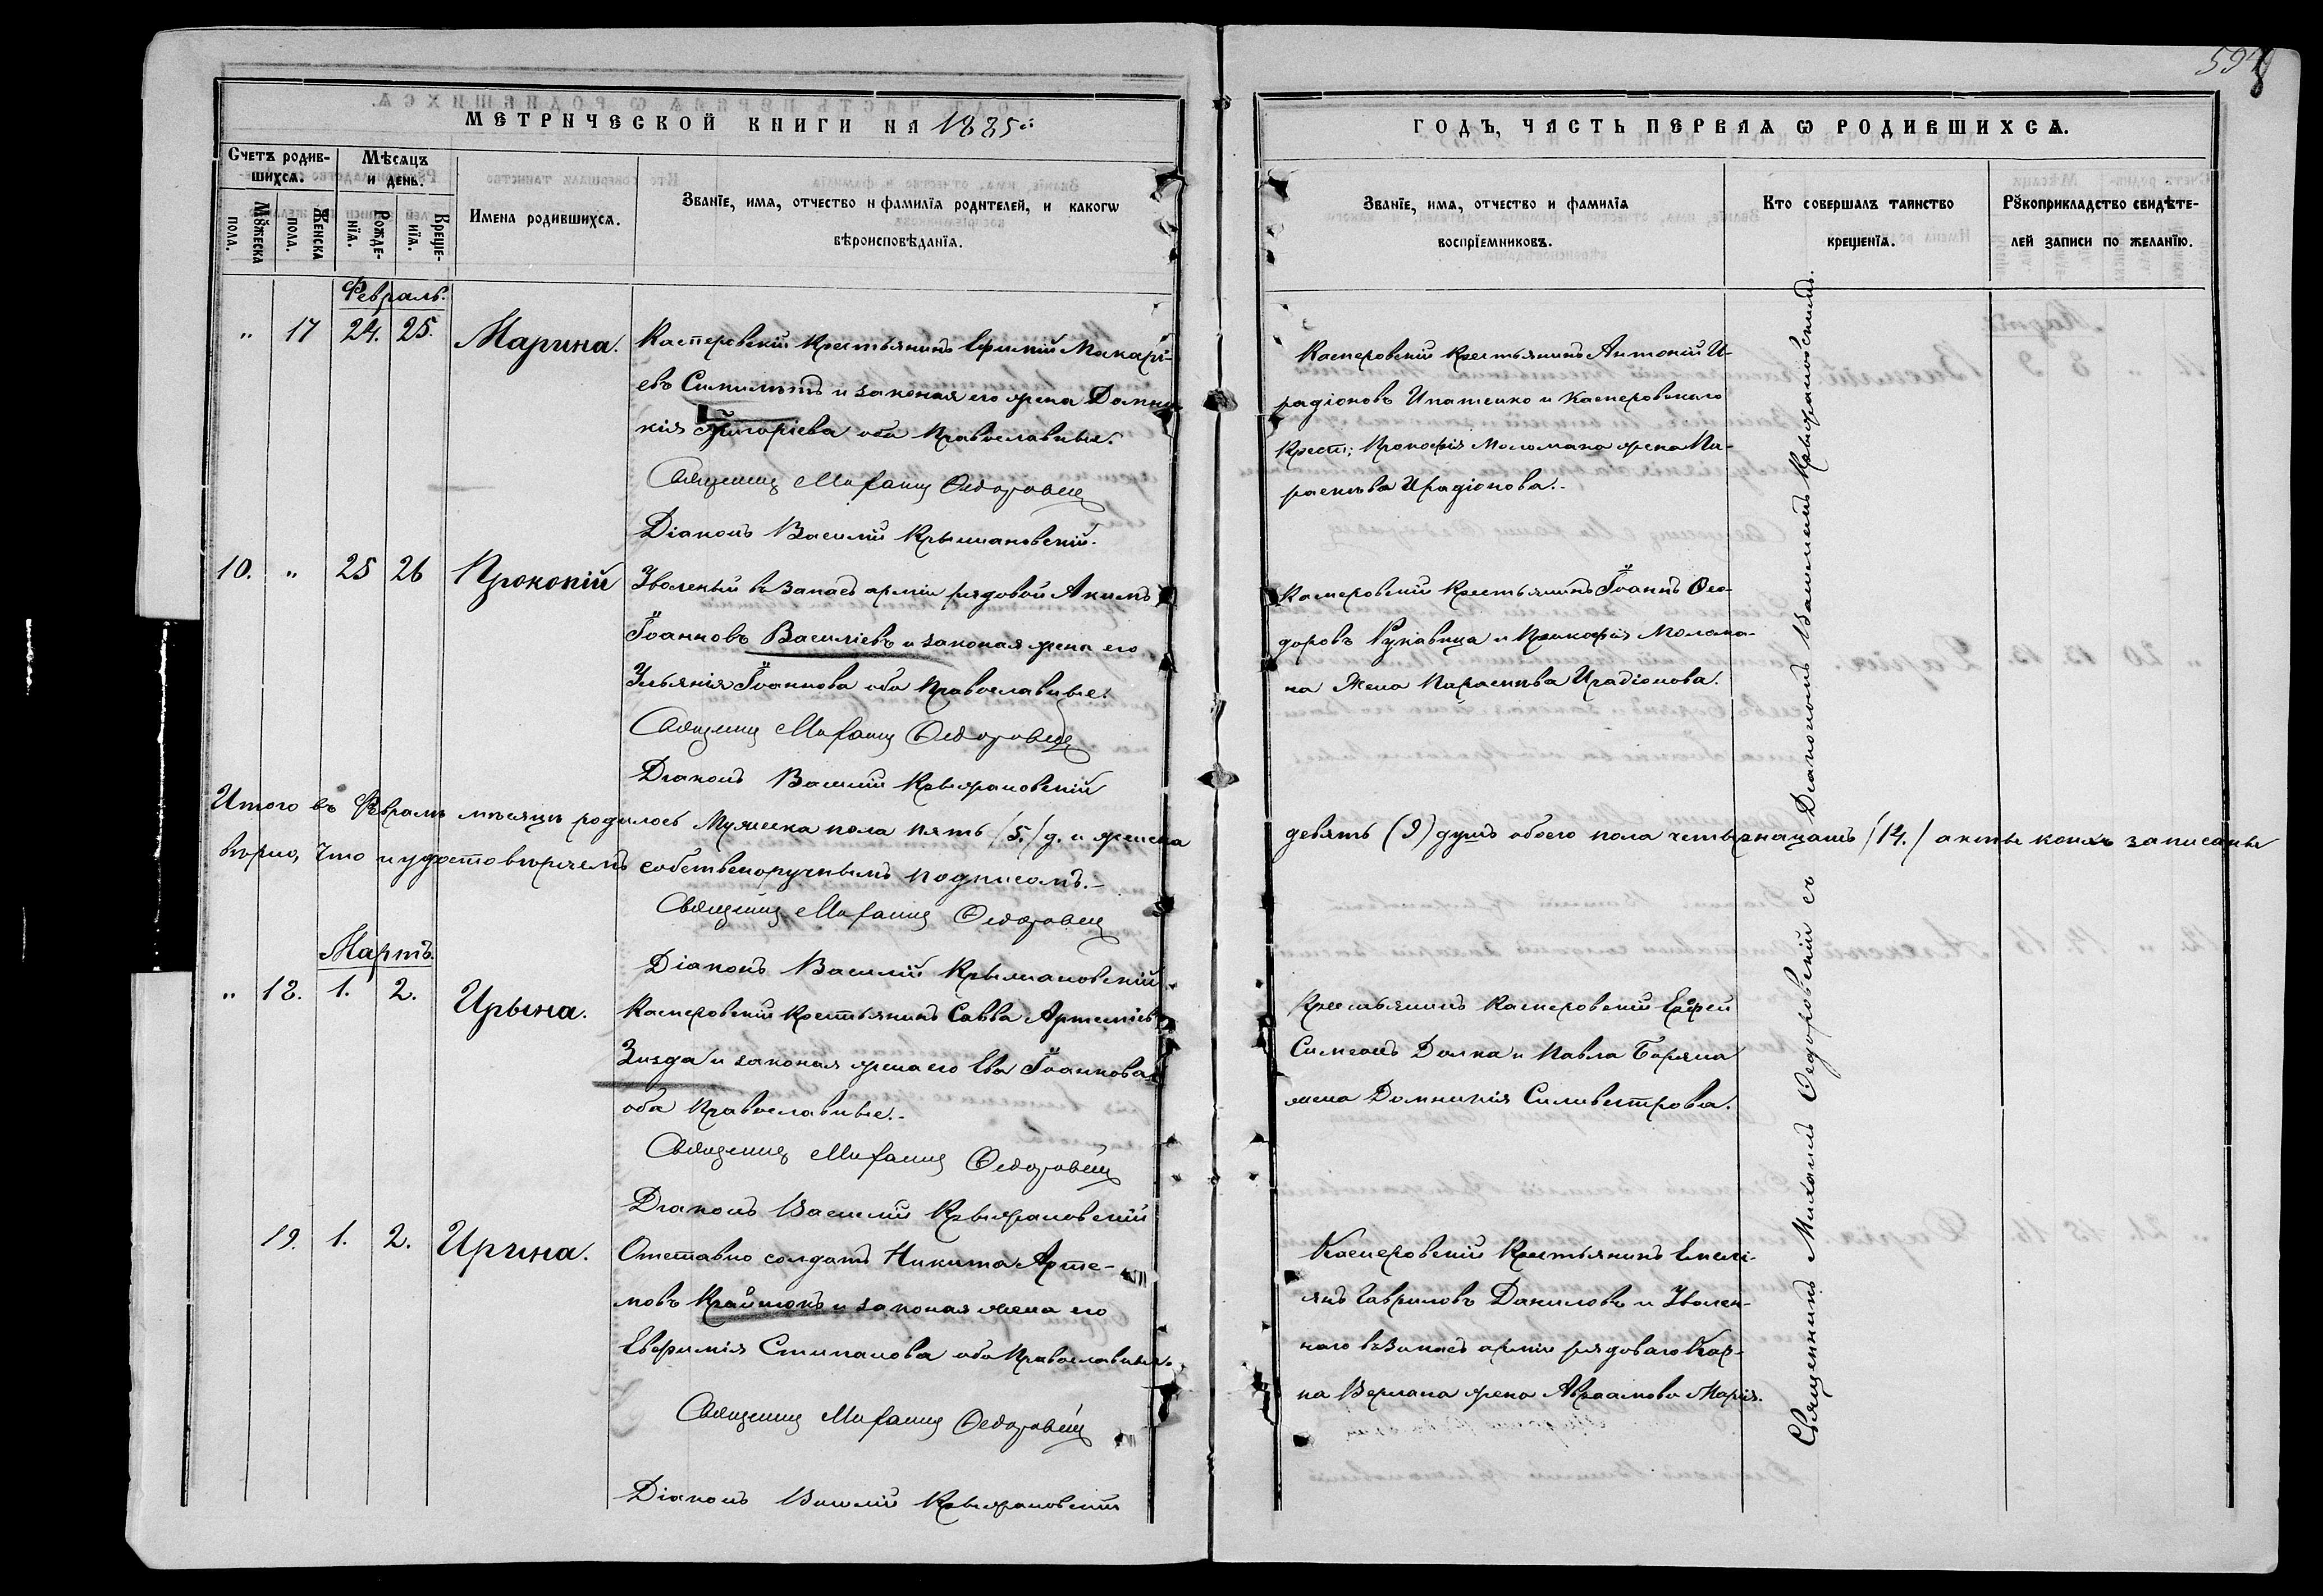 594
МЕТРИЧЕСКОЙ КНИГИ НА 1885й
ГОДЪ, ЧАСТЬ ПЕРВАѦ Ѡ РОДИВШИХСѦ.
Счетъ родив-
шихсѧ.
Мѣсѧцъ
и день.
Мꙋжеска
пола.
Женска
пола.
Рожде-
нїѧ.
Креще-
нїѧ.
Имена родившихсѧ.
Званїе, имѧ, отчество и фамилїѧ родителей, и какогѡ
вѣроисповѣданїѧ.
Званїе, имѧ, отчество и фамилїѧ
воспрїемниковъ.
Кто совершалъ таинство
крещенїѧ.
Рꙋкоприкладство свидѣте-
лей записи по желанїю.
Февраль.
" 17 24. 25. Марина.
Касперовскій Крестьянинъ Ефимій Макарі-
евъ и законая его жена Домни-
кія Григоріева оба Православные.
Священник Михаил Ѳедоровск
Діаконъ Василій Крыжановскій.
Касперовскій Крестьянинъ Антоній И-
радіоновъ Ипатенко и Касперовскаго
Крест: Прокофія Моломана жена Па-
раскева Ирадіонова.
10. " 25 26 Прокопій
Уволеный въ запасъ арміи рядовой Акимъ
Іоанновъ Василіевъ и законая жена его
Ульянія Іоаннова оба Православные.
Священник Михаил Ѳедоровск
Діаконъ Василій Крыжановскій
Касперовскій Крестьянинъ Іоаннъ Ѳео-
доровъ Рукавица и Прокофія Молома-
на Жена Параскева Ирадіонова.
Итого въ Февралѣ мѣсяцѣ родилось Мужеска пола пять (5.) д. и женска
девять (9) душъ обоего пола четырнацать (14.) акты коихъ записаны
вѣрно, что и удостовѣряемъ собственоручнымъ подписомъ.
Священник Михаил Ѳедоровск
Діаконъ Василій Крыжановскій
Мартъ.
" 18. 1. 2. Ирына.
Касперовскій Крестьянинъ Савва Артеміевъ
и законая жена его Ева Іоаннова
оба Православные.
Священник Михаил Ѳедоровск
Діаконъ Василій Крыжановскій
Крестьянинъ Касперовскій
Симеонъ и Павла
жена Домникія Силивестрова.
19. 1. 2. Ирина.
Отставно солдатъ Никита Арте-
мовъ и законая жена его
Евфимія Стипанова оба Православные.
Священник Михаил Ѳедоровск
Діаконъ Василій Крыжановскій
Касперовскій Крестьянинъ Емелі-
янъ Гавриловъ Даниловъ и Уволен-
наго въ запасъ арміи рядоваго Кар-
па жена Авраамова Марія.
Священникъ Михаилъ Ѳедоровскій съ Діакономъ Василіемъ Крыжановскимъ.